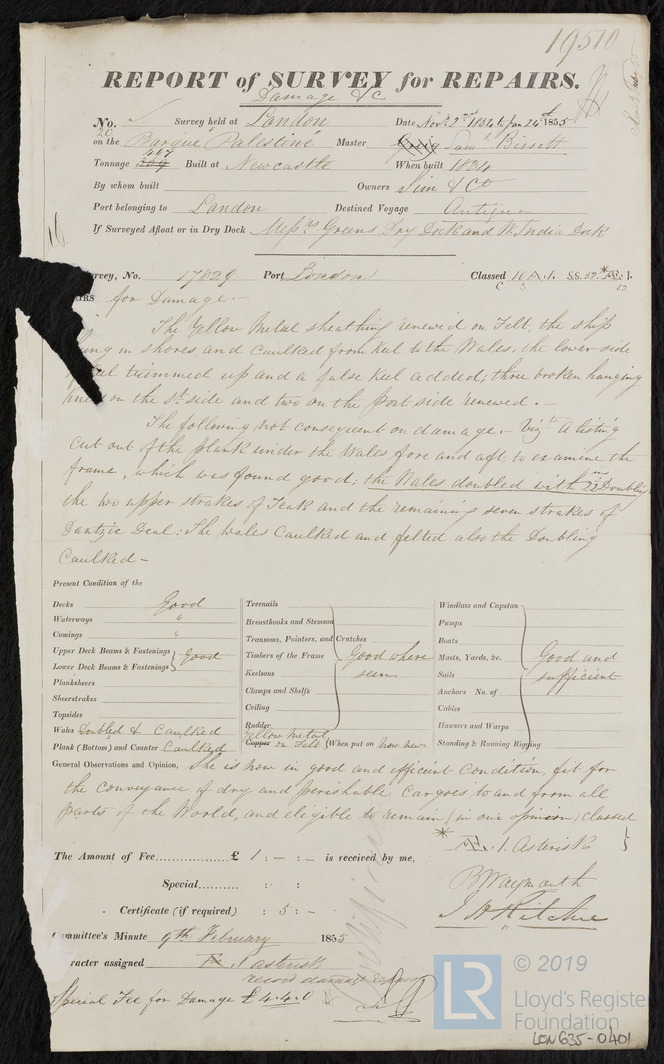 19510
REPORT of SURVEY for REPAIRS.
Damage &c
No. Survey held at London Date Novr 2nd 1854 to Jan 24th 1855
20
on the Barque "Palestine" Master Craig Saml Birsett
467
Tonnage Built at Newcastle When built 1834
By whom built Owners Sim & Co
Port belonging to London Destined Voyage Antigua
If Surveyed Afloat or in Dry Dock Messrs Greens Dry Dock and W. India Dock
urvey, No. 17829 Port London Classed
AIRS for Damage.—
The Yellow Metal sheathing renewed on Felt, the ship
in shores, and Caulked from Keel to the Wales. the lower side
trimmed up and a false keel added; three broken hanging
knees on the St. side and two on the port side renewed.—
The following not consequent on damage.— Vizt A listing
cut out of the plank under the Wales fore and aft to examine the
frame, which was found good; the Wales doubled with 2½ ins Doubling
the two upper strakes of Teak and the remaining seven strakes of
Dantzic Deal: The Wales Caulked and felted also the Doubling
Caulked—
Present Condition of the
Decks Good
Waterways "
Comings "
Upper Deck Beams & Fastenings
Lower Deck Beams & Fastenings } Good
Planksheers
Sheerstrakes
Topsides
Wales Doubled & Caulked
Plank (Bottom) and Counter Caulked
Treenails
Breasthooks and Stemson
Transoms, Pointers, and Crutches
Timbers of the Frame Good where
Keelsons seen
Clamps and Shelfs
Ceiling
Rudder
Yellow Metal
Copper on Felt (When put on now new
Windlass and Capstan
Pumps
Boats
Masts, Yards, &c. Good and
Sails sufficient
Anchors No. of
Cables
Hawsers and Warps
Standing & Running Rigging
General Observations and Opinion, She is now in good and efficient Condition, fit for
the conveyance of dry and perishable Cargoes to and from all
parts of the World, and eligible to remain (in our opinion) classed
* Æ. 1. Asterisk
The Amount of Fee................£ 1 : — : — is received by me,
Special.......... : :
B Waymouth
Certificate (if required) : 5 : —
J H Ritchie
ommittee's Minute 9th February 1855
racter assigned Æ 1 asterisk
record damage repairs
Special Fee for Damage £4.4.0
© 2019
LR
Lloyd's Register
Foundation
LON635-0401